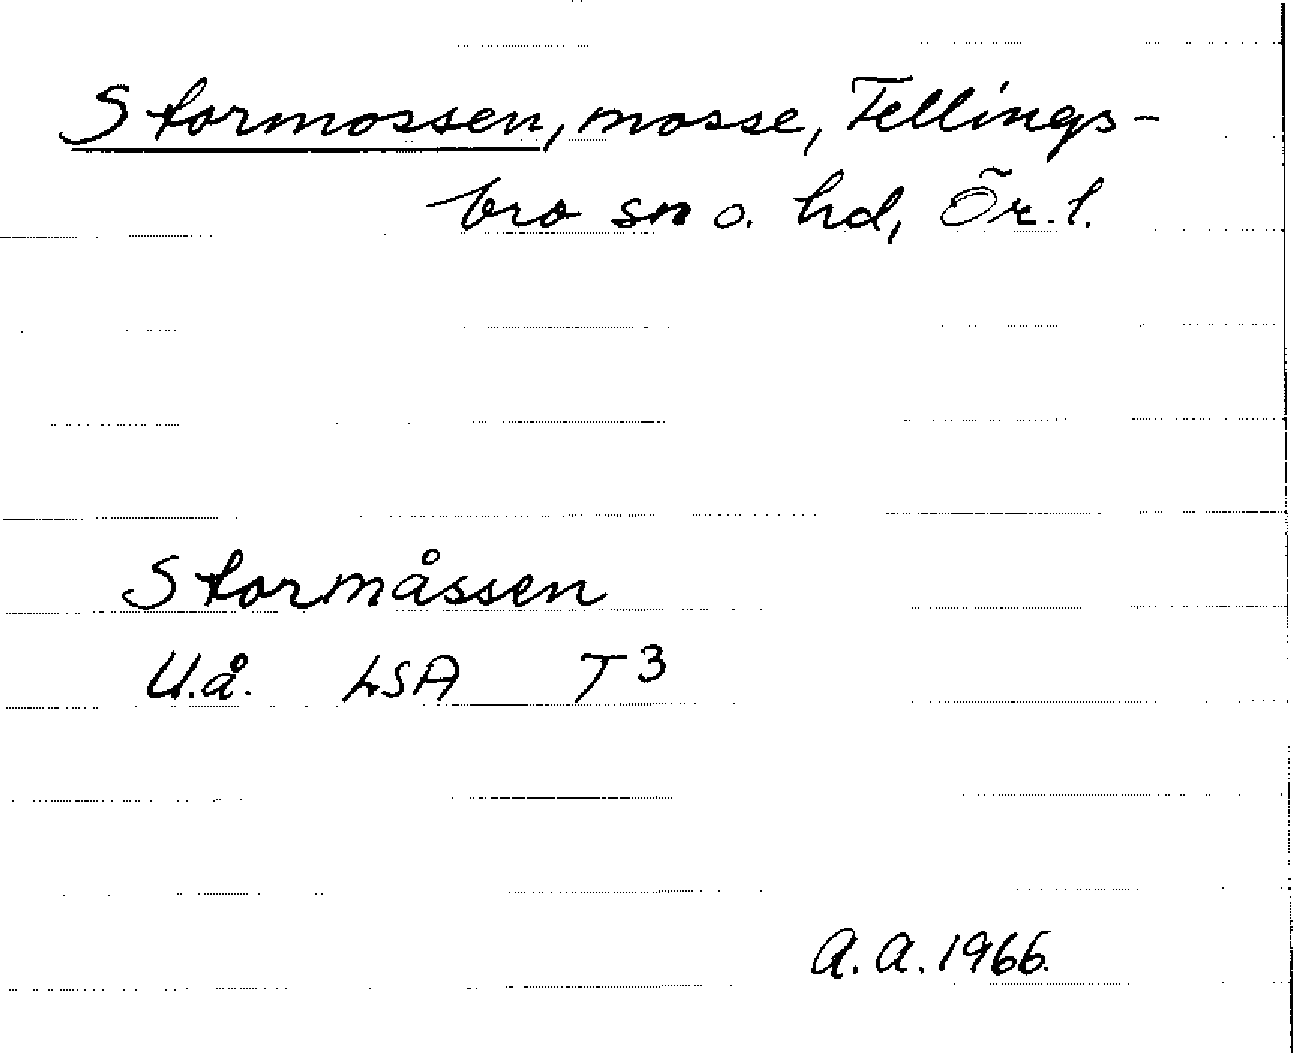 Stormossen, mosse, Fellings-
bro sn o. hd, Ör. l.
Stormåssen
U.å. LSA T3
A.A. 1966.